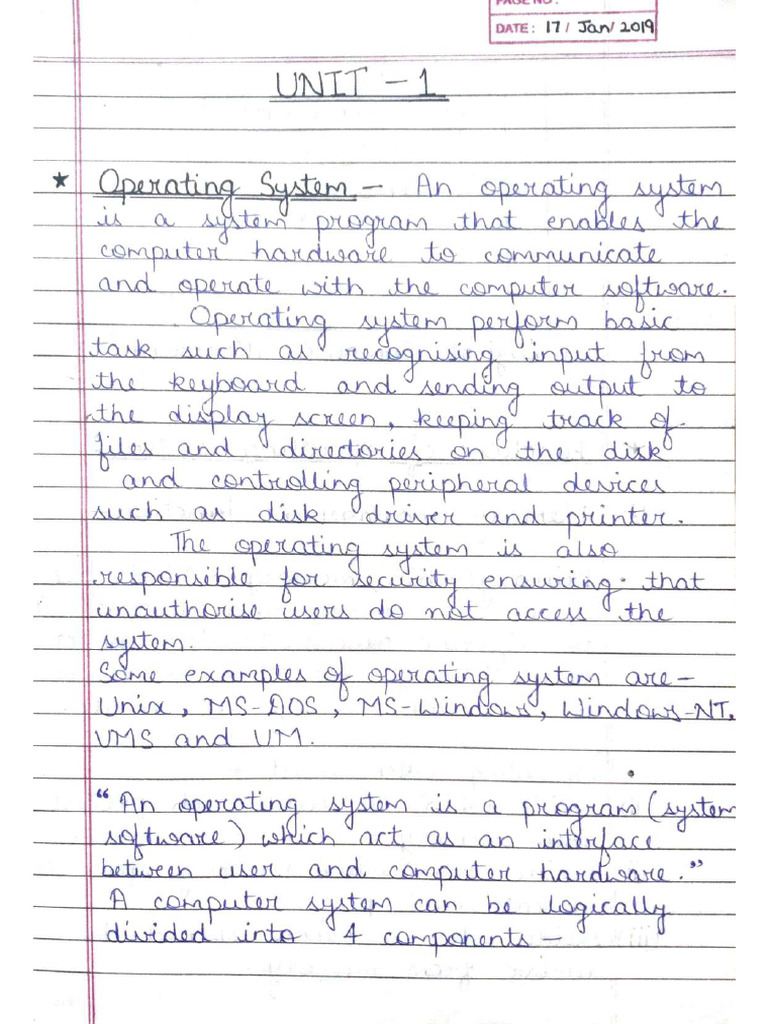 PAGE NO:
DATE: 17/ Jan/ 2019
UNIT - 1
★ Operating System - An operating system
is a system program that enables the
computer hardware to communicate
and operate with the computer software.
Operating system perform basic
task such as recognising input from
the keyboard and sending output to
the display screen, keeping track of
files and directories on the disk
and controlling peripheral devices
such as disk driver and printer.
The operating system is also
responsible for security ensuring that
unauthorise users do not access the
system.
Some examples of operating system are-
Unix, MS-DOS, MS-Windows, Windows-NT,
VMS and VM.
“An operating system is a program (system
software) which act as an interface
between user and computer hardware.”
A computer system can be logically
divided into 4 components -